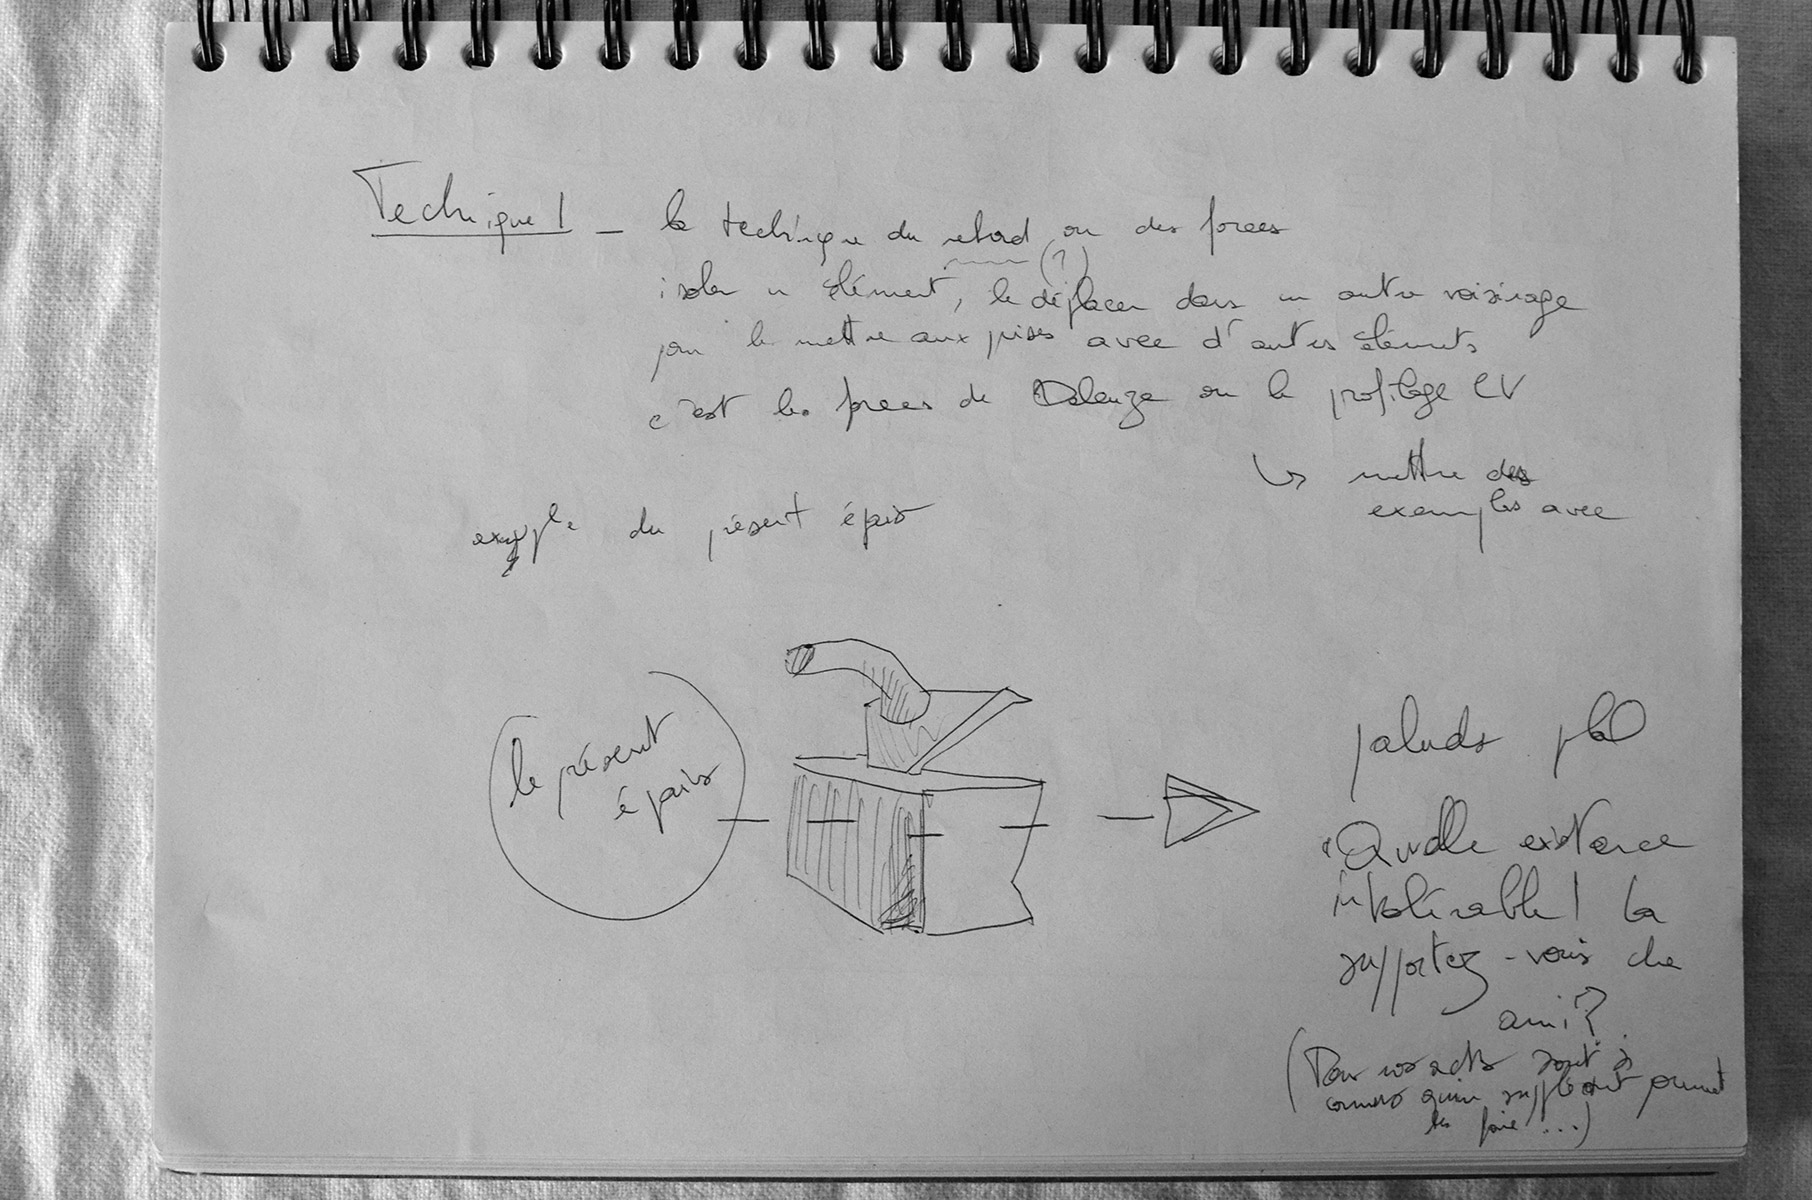 Technique 1 - la technique du rebord ou des forces
(?)
isoler un élément, le déplacer dans un autre voisinage
pour le mettre aux prises avec d'autres éléments
c'est les forces de Deleuze ou le profilage CV
↳ mettre des
exemples avec
exemple du présent épais
le présent
épais
paluds
"Quelle existence
intolérable! La
supportez-vous che
ami?
(Tous nos actes sont si
connus qu'un suppléant pourrait
les faire ...)